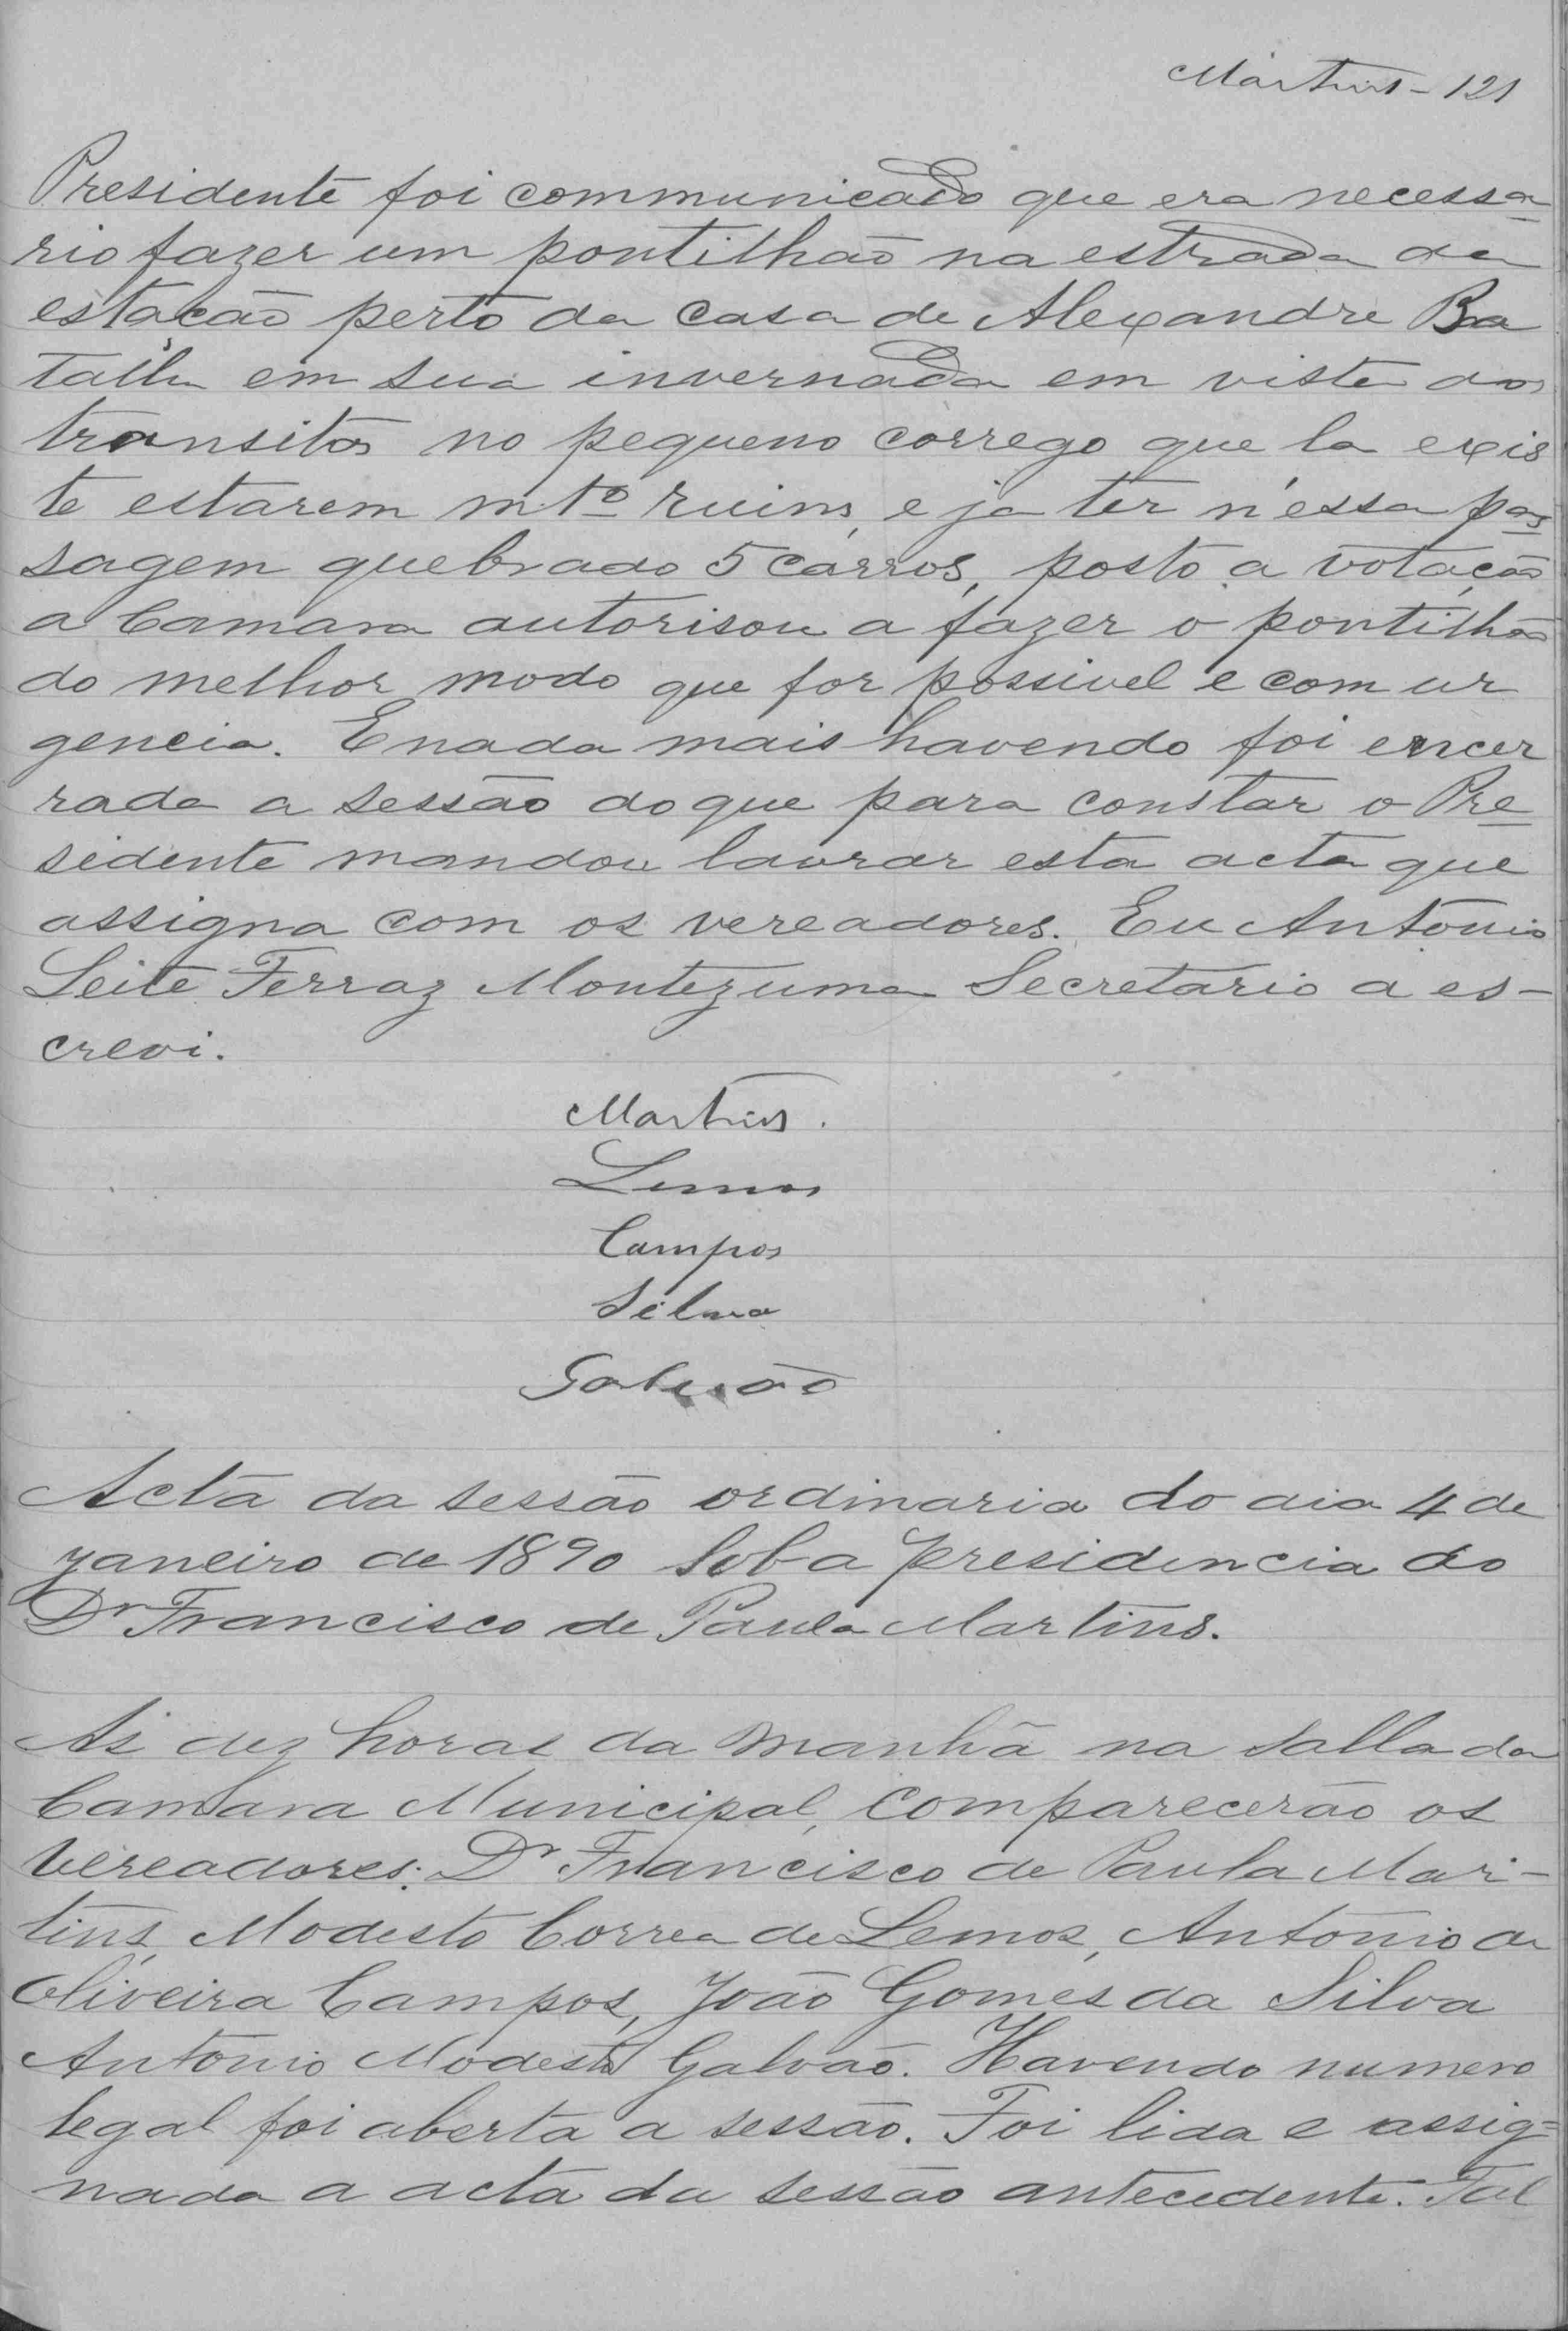 Martins - 121
Presidente foi communicado que era necessa
rio fazer um pontilhão na estrada da
estação perto da casa de Alexandre Ba
talha em sua invernada em vista dos
transitos no pequeno corrego que la exis
te estarem mto ruins, e ja ter n'essa pas
sagem quebrado 5 carros, posto a votação
a Camara autorisou a fazer o pontilhão
do melhor modo que for possivel e com ur
gencia. E nada mais havendo foi encer
rada a sessão do que para constar o Pre
sidente mandou lavrar esta acta que
assigna com os vereadores. Eu Antonio
Leite Ferraz Montezuma Secretario a es-
crevi.
Martins.
Lemos
Campos
Silva
Galvão
Acta da sessão ordinaria do dia 4 de
Janeiro de 1890 Sob a presidencia do
Dr Francisco de Paula Martins.
As dez horas da manhã na salla da
Camara Municipal, comparecerão os
vereadores: Dr Francisco de Paula Mar-
tins, Modesto Correa de Lemos, Antonio de
Oliveira Campos, João Gomes da Silva
Antonio Modesto Galvão. Havendo numero
legal foi aberta a sessão. Foi lida e assig=
nada a acta da sessão antecedente. Fal